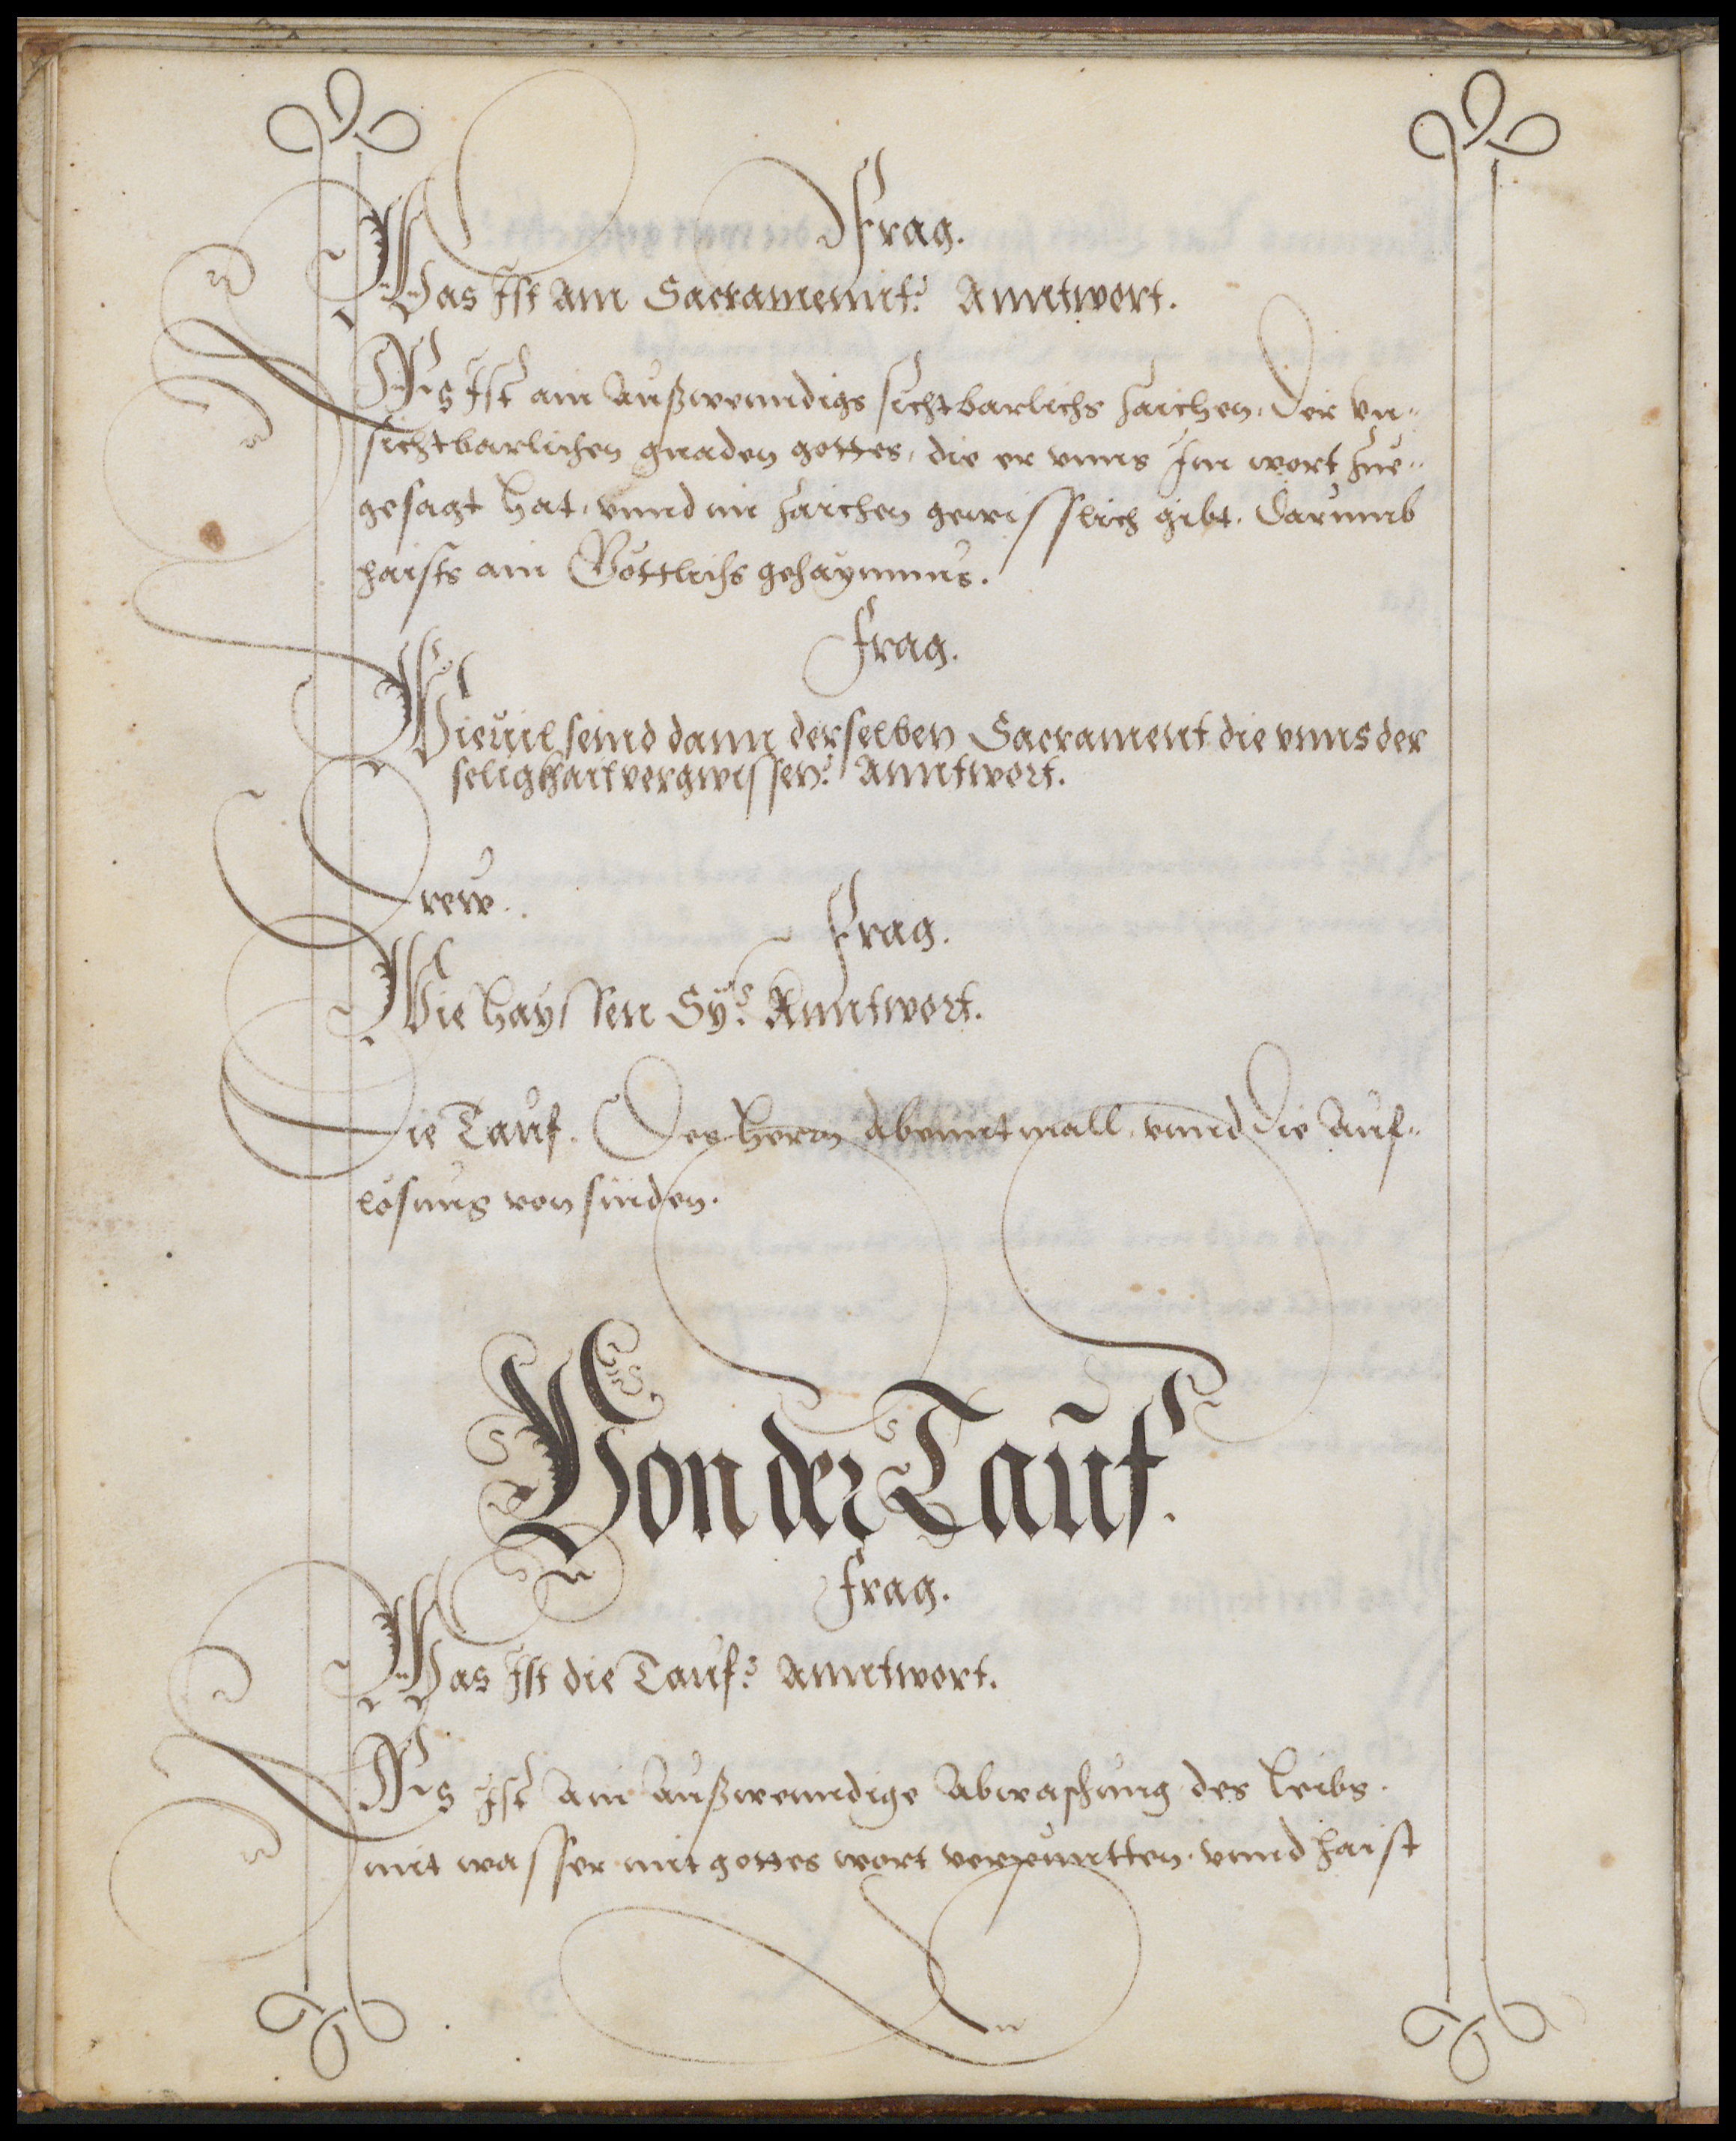 Frag.
Was Ist Am Sacramennt? Anntwort.
Es Ist ain Außwenndigs sichtbarlichs Zaichen, Der vn-
sichtbarlichen gnaden gottes, die er vnns Im wort Zue-
gesagt hat, vnnd im Zaichen gewisslich gibt. Darumb
haists ain Göttlichs gehaymnus.
Frag.
Wieuil seind dann derselben Sacrament die vnns der
seligkhait vergwissen? Anntwort.
Drew.
Frag.
Wie hayssen Sy? Anntwort.
Die Tauf. Des herrn Abenntmall, vnnd die Auf-
lösung von sünden.
Von der Tauf.
Frag.
Was Ist die Tauf? Anntwort.
Es Ist Ain Außwenndige Abwaschung des leibs.
mit wasser mit gottes wort verpuntten, vnnd haist